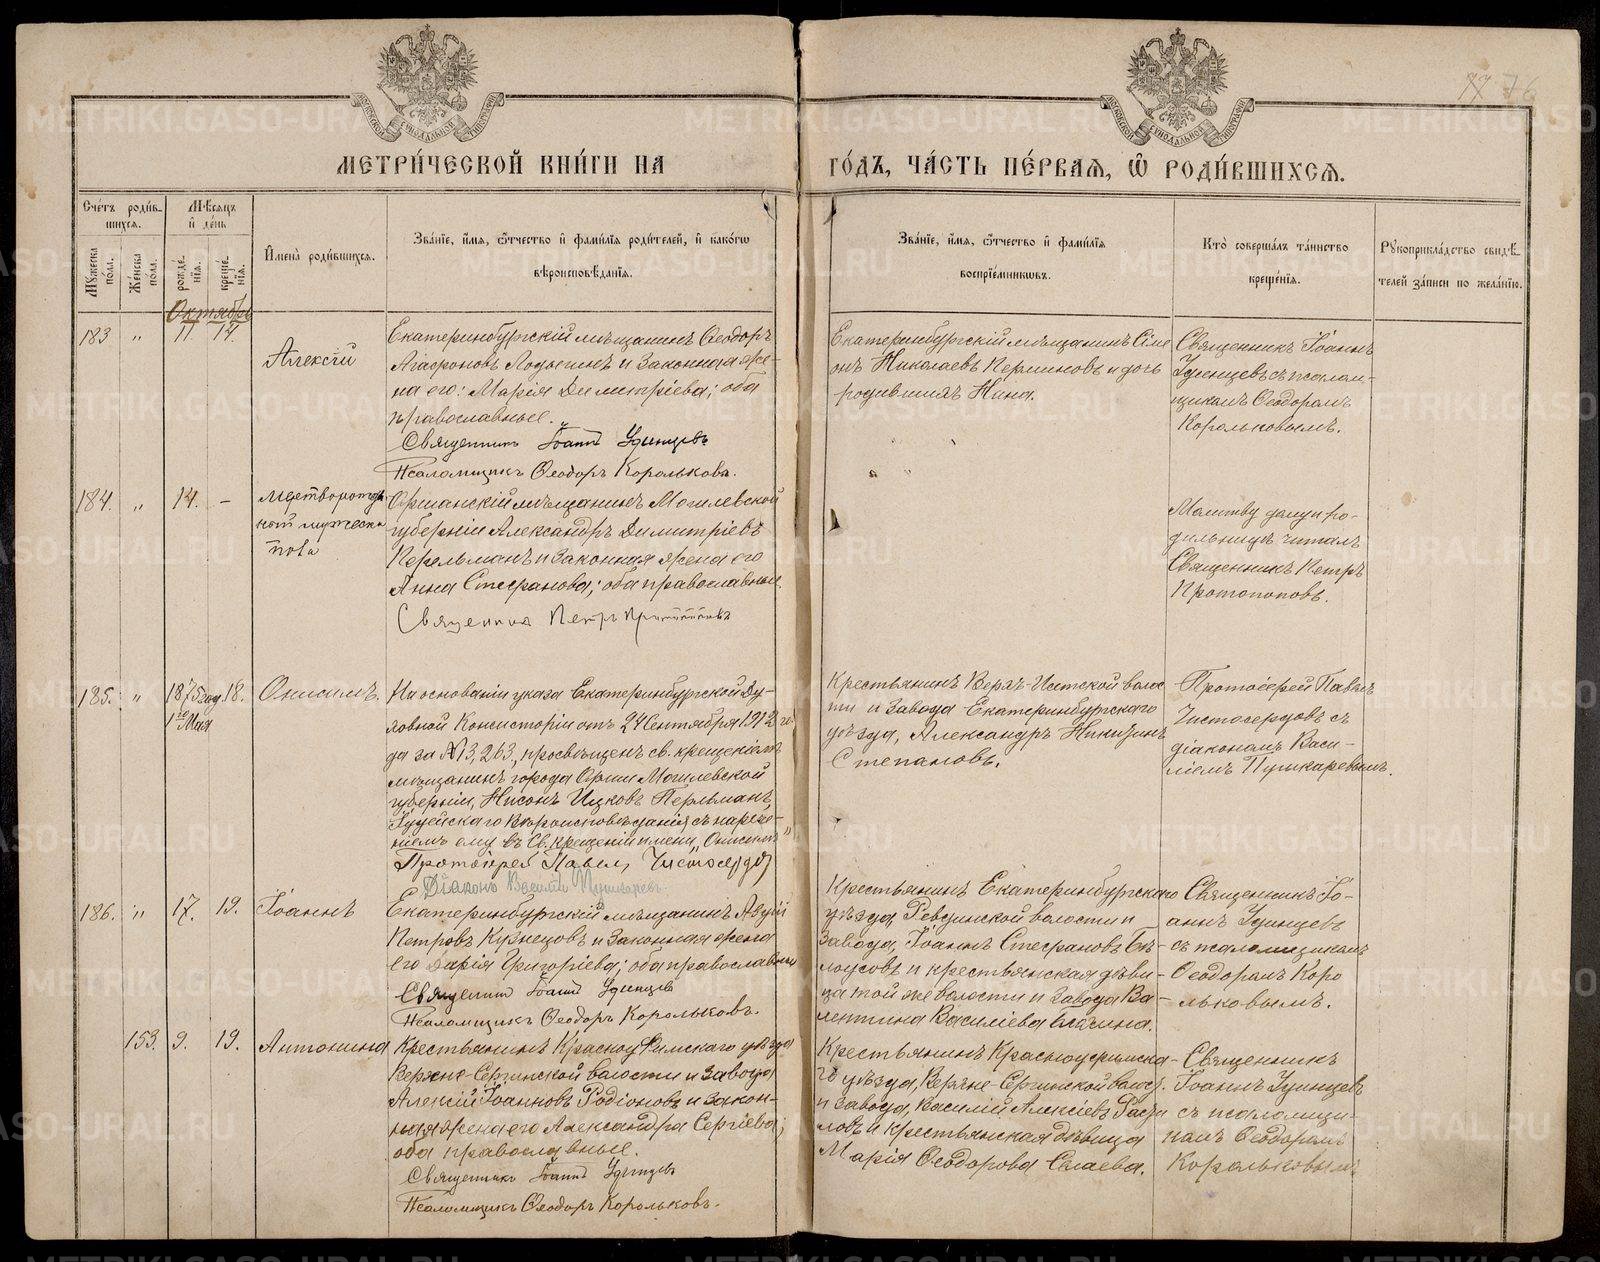 77 76
МЕТРИ́ЧЕСКОЙ КНИ́ГИ НА
ГО́ДЪ, ЧА́СТЬ ПЕ́РВАЯ, Ѡ РОДИ́ВШИХСЯ.
Сче́тъ роди́в-
шихся.
Му́жеска по́ла.
Же́нска по́ла.
Мѣ́сяцъ и де́нь
рожде́-
нія.
креще́-
нія.
Имена̀ роди́вшихся.
Зва́ніе, и́мя, ѻ́тчество и фами́лія роди́телей, и како́гѡ
вѣроисповѣ́данія.
Зва́ніе, и́мя, ѻ́тчество и фами́лія
воспріе́мникѡвъ.
Кто̀ соверша́лъ та́инство
креще́нія.
Рꙋкоприкла́дство свидѣ́-
телей за́писи по жела́нію.
Октябрь
183 " 11 14.
Алексій
Екатеринбургскій мѣщанинъ Ѳеодоръ
Агафоновъ и законная же-
на его: Марія Димитріева; оба
православные.
Священникъ Іоаннъ Удинцевъ
Псаломщикъ Ѳеодоръ Корольковъ.
Екатеринбургскій мѣщанинъ Симе
онъ Николаевъ Перминовъ и дочь
родившаяя Нина.
Священникъ Іоаннъ
Удинцевъ съ псалом-
щикомъ Ѳеодоромъ
Корольковымъ.
184. " 14. –
мертворожден
ный мужеска
пола
Оршанскій мѣщанинъ Могилевской
губерніи Александръ Димитріевъ
Перельманъ и законная жена его
Анна Стефанова; оба православные.
Священникъ Петръ Протопоповъ
Молитву дому и ро-
дильницѣ читалъ
Священникъ Петръ
Протопоповъ.
185. " 1875 год. 18.
1го Мая
Онисимъ.
На основаніи указа Екатеринбургской Ду-
ховной Консисторіи отъ 24 Сентября 1912 го
да за №13,263, просвѣщенъ св. крещеніемъ
мѣщанинъ города Орши Могилевской
губерніи, Нисонъ Ицковъ Перльманъ,
Іудейскаго Вѣроисповѣданія съ нарече-
ніемъ ему въ Св. крещеніи имени „Онисимъ"
Протоіерей Павелъ Чистосердовъ
Діаконъ Василій Пушкаревъ.
Крестьянинъ Верхъ-Исетской волос
ти и завода Екатеринбургскаго
уѣзда, Александръ Никитинъ
Степановъ.
Протоіерей Павелъ
Чистосердовъ съ
діакономъ Васи-
ліемъ Пушкаревымъ.
186. " 17. 19. Іоаннъ
Екатеринбургскій мѣщанинъ
Петровъ Кузнецовъ и законная жена
его Дарія Григоріева; оба православные
Священникъ Іоаннъ Удинцевъ
Псаломщикъ Ѳеодоръ Корольковъ.
Крестьянинъ Екатеринбургскаго
уѣзда, Ревдинской волости и
завода, Іоаннъ Стефановъ Бѣ-
лоусовъ и крестьянская дѣви-
ца той же волости и завода Ва-
лентина Василіева
Священникъ Іо-
аннъ Удинцевъ
съ псаломщикомъ
Ѳеодоромъ Коро
льковымъ.
153. 9. 19. Антонина
Крестьянинъ Красноуфимскаго уѣзда
Верхне-Сергинской волости и завода
Алексій Іоанновъ Родіоновъ и закон-
ная жена его Александра Сергіева;
оба православные.
Священникъ Іоаннъ Удинцевъ
Псаломщикъ Ѳеодоръ Корольковъ.
Крестьянинъ Красноуфимска-
го уѣзда, Верхне-Сергинской волос.
и завода, Василій Алексіевъ
и крестьянская дѣвица
Марія Ѳеодорова
Священникъ
Іоаннъ Удинцевъ
съ псаломщи-
комъ Ѳеодоромъ
Корольковымъ